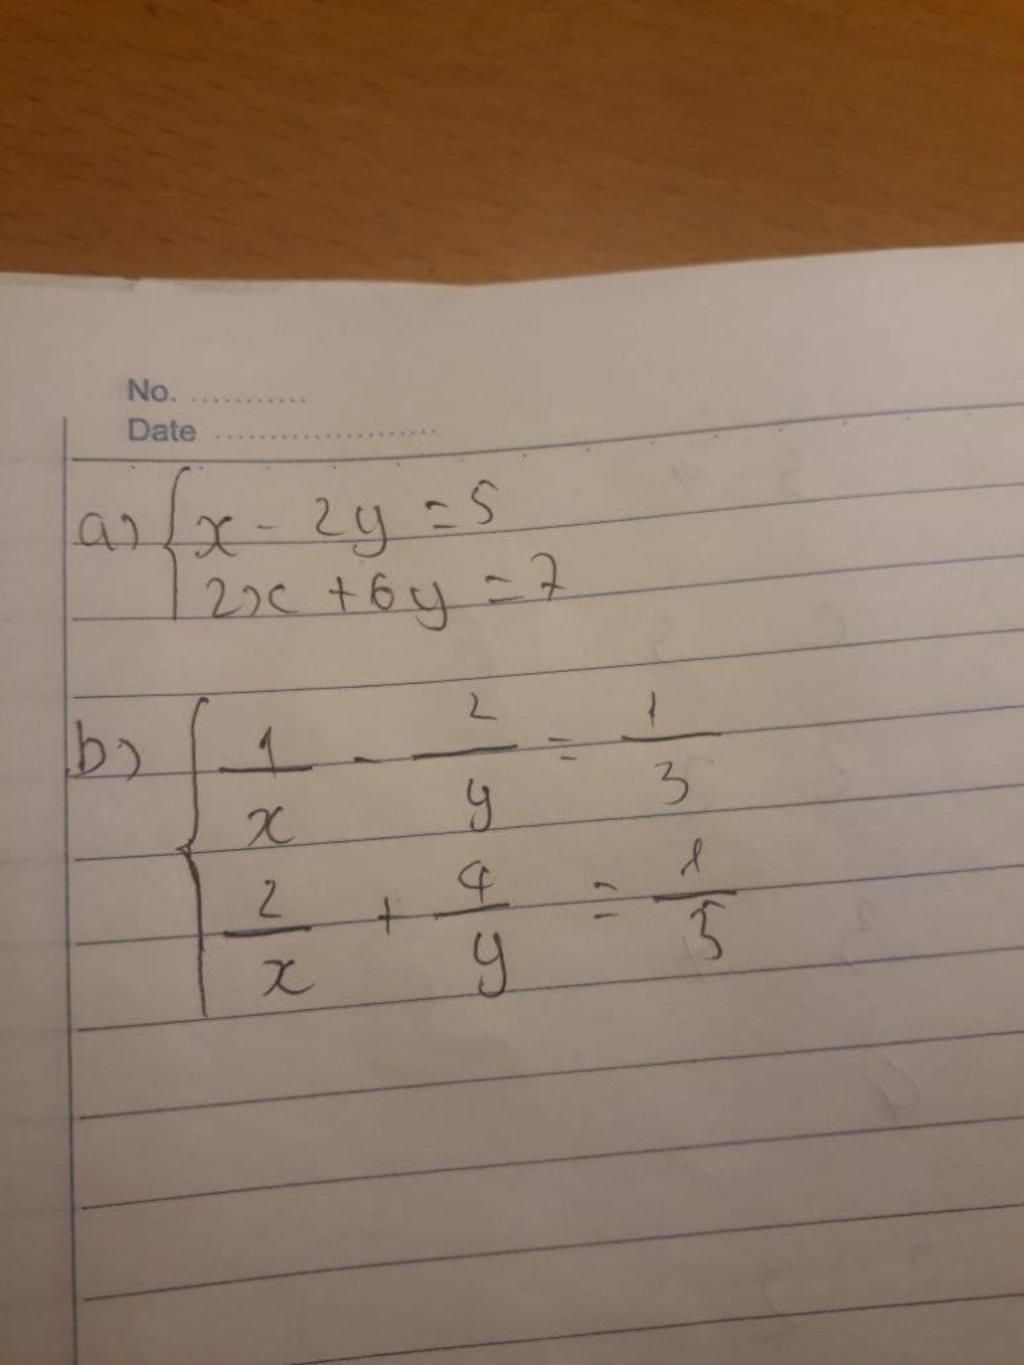 No. ...........
Date .....................
a) { x - 2y = 5
2x + 6y = 7
b) { 1/x - 2/y = 1/3
2/x + 4/y = 1/5